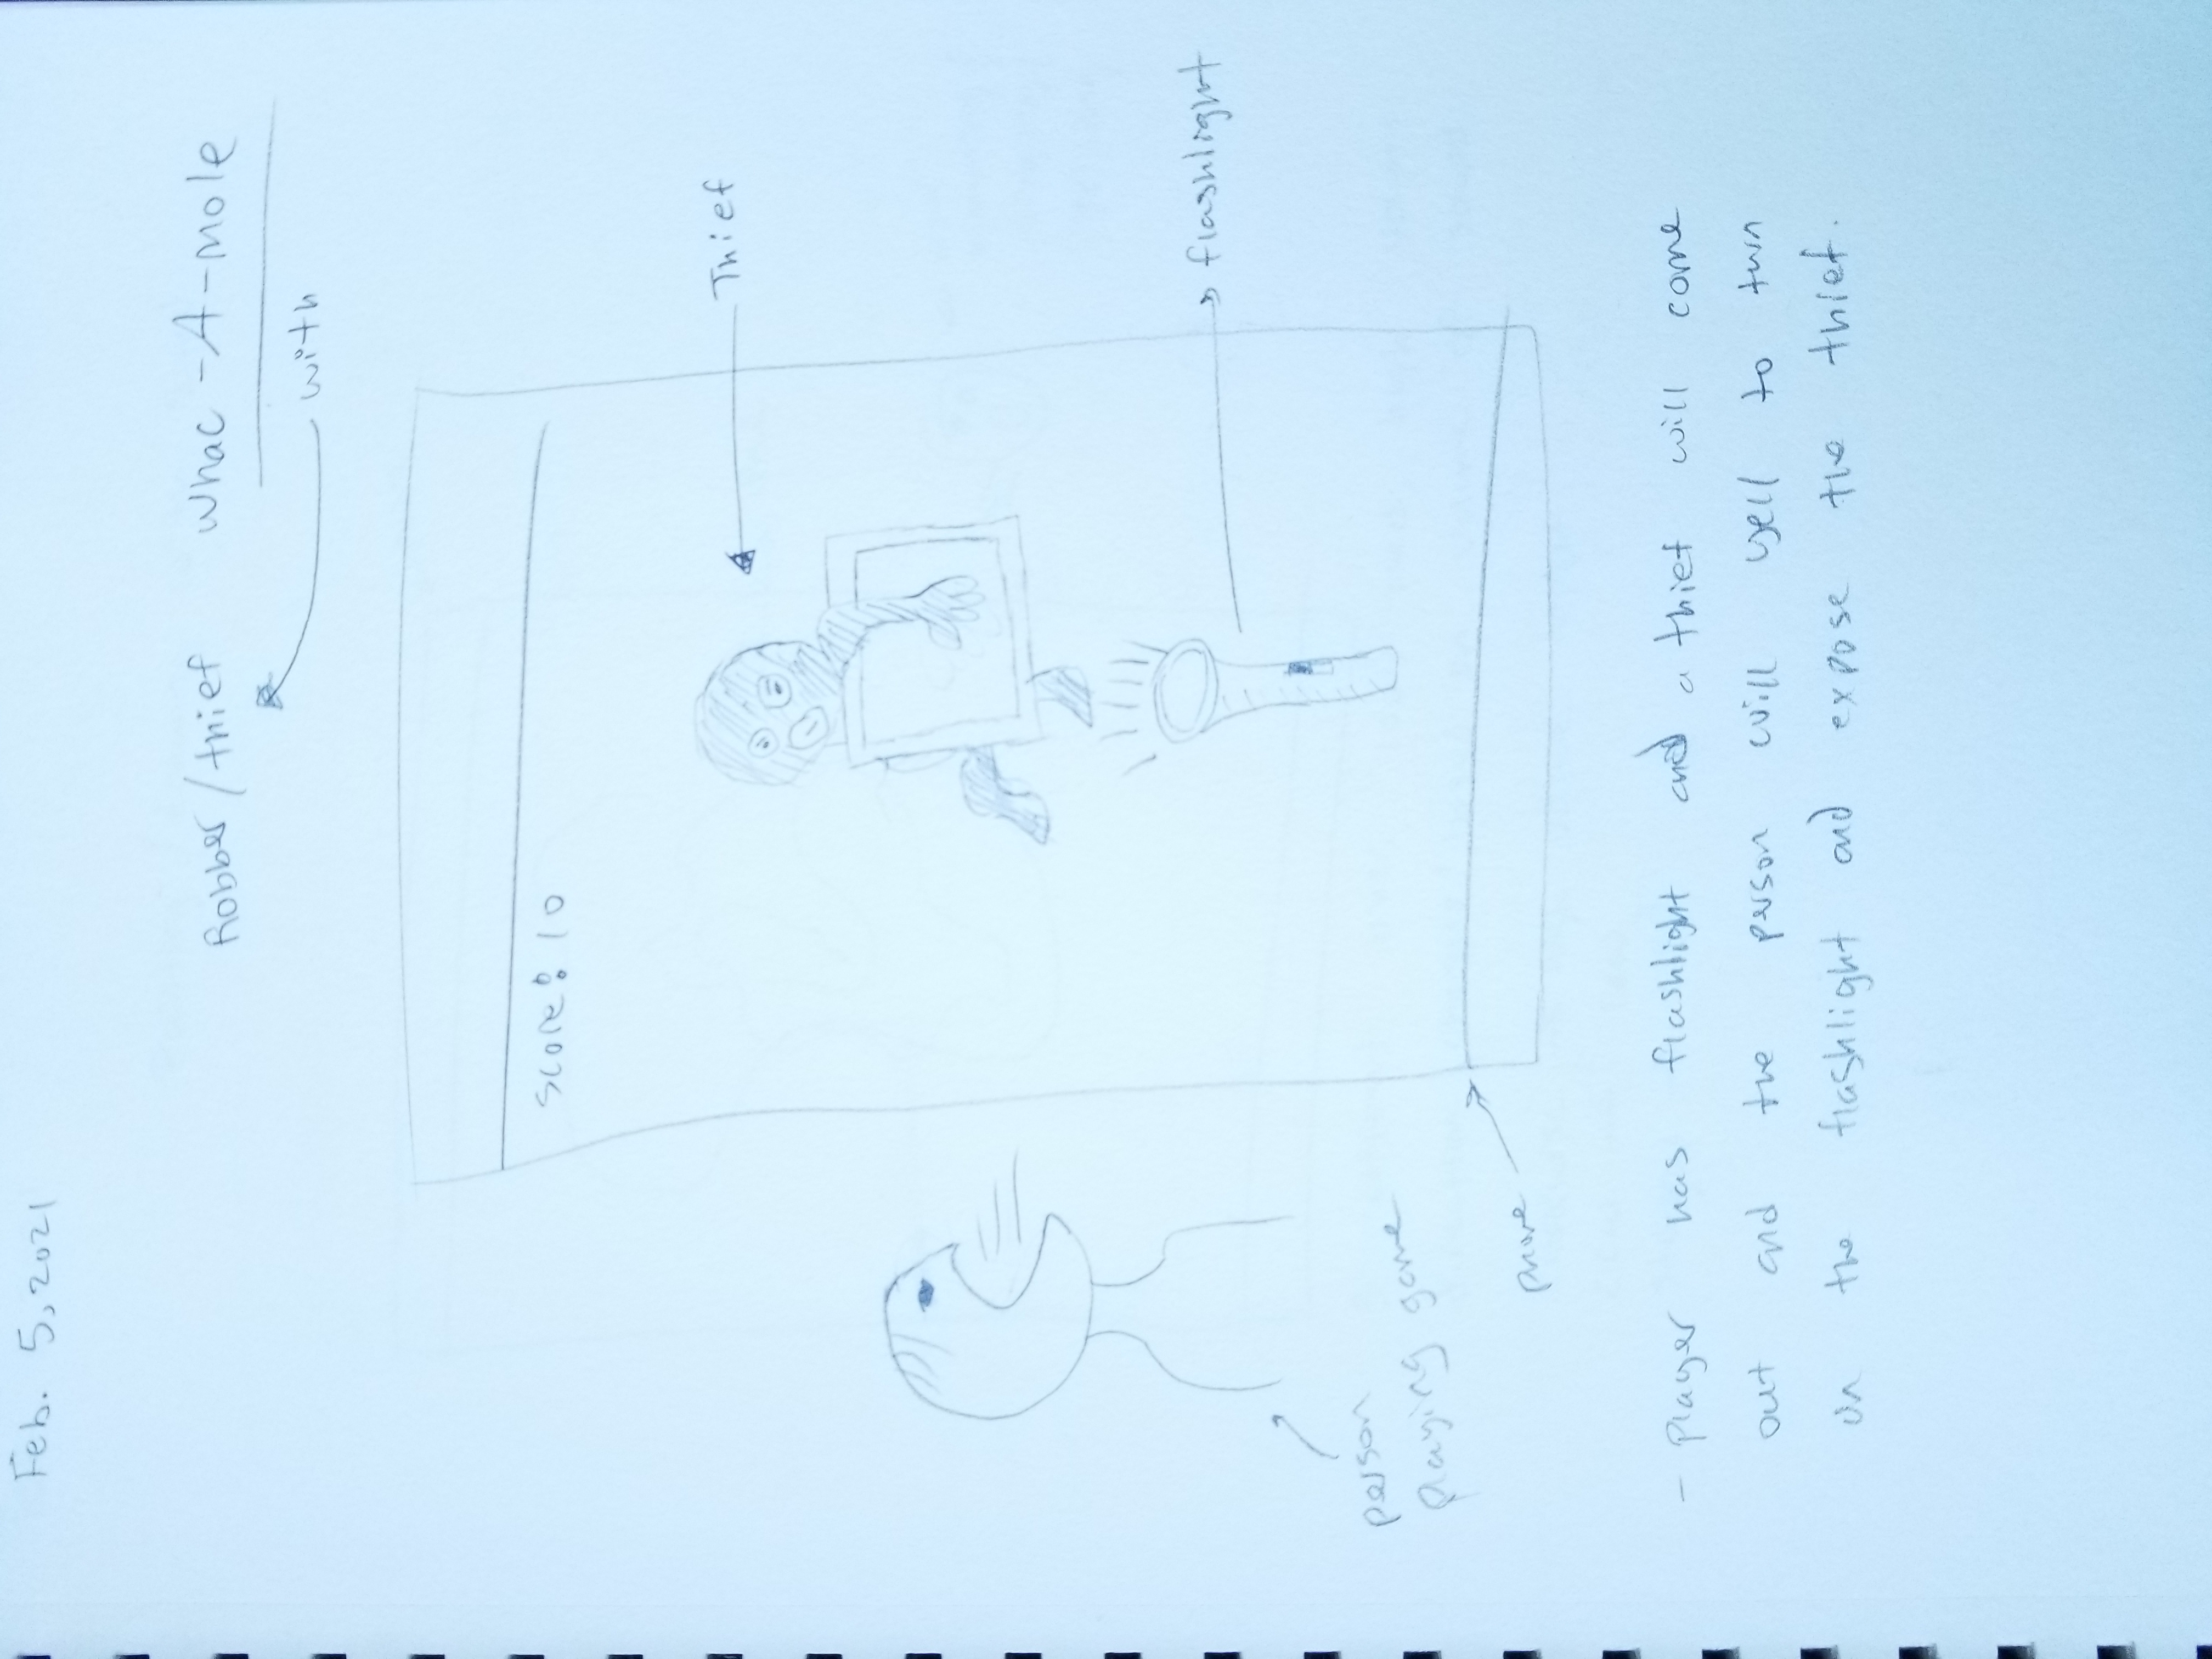 Feb. 5, 2021
Robber/thief Whac-A-Mole
with
Score: 10
Thief
flashlight
person
playing game
phone
- player has flashlight and a thief will come
out and the person will yell to turn
on the flashlight and expose the thief.